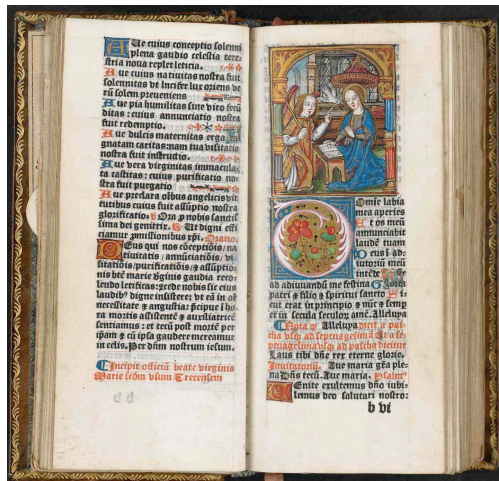 Aue cuius conceptio solenni
plena gaudio celestia terre
stria noua replet leticia.
Aue cuius natiuitas nostra fuit
solennitas vt lucifer lux oriens ve
rū solem preueniens
Aue pia humilitas sine viro fecū
ditas: cuius annunciatio nostra
fuit redemptio.
Aue dulcis maternitas erga
gnatam caritas: nam tua visitatio
nostra fuit instructio.
Aue vera virginitas immacula
ta castitas: cuius purificatio no
stra fuit purgatio
Aue preclara oībus angelicis vir
tutibus cuius fuit assūptio nostra
glorificatio. Ora p nobis sanctis
sima dei genitrix. Ut digni effi
ciamur pmissionibus xp̄i. Oratio.
Deus qui nos cōceptiōis / na
tiuitatis / annūciatiōis / vi
sitatiōis / purificatiōis / ⁊ assūptio
nis btē marie v̄ginis gaudia reco
lendo letificas: ꝯcede nobis sic eius
laudibꝰ digne insistere: vt eā in oī
necessitate ⁊ angustia: p̄cipue ī ho
ra mortis assistentē ⁊ auxiliatricē
sentiamus: et tecū post mortē per
ip̄am ⁊ cū ipsa gaudere mereamur
in celis. per dn̄m nostrum iesum.
Incipit officiū beate virginis
Marie scd̄m vsum Trecensem
Domīe labia
mea aperies
Et os meū
annunciabit
laudē tuam
Deus ī ad
iutoriū meū
intēde
ad adiuuandū me festina Gloria
patri ⁊ filio ⁊ spiritui sancto Si
cut erat in principio ⁊ nūc ⁊ semp
er in secula seculoꝝ amē. Alleluya
Nota ꝙ Alleluya dicit a pas
cha vsqꝫ ad septuagesimā Et a se
ptuagesima vsqꝫ ad pascha dicitur
Laus tibi dn̄e rex eterne glorie.
Inuitatoriū. Aue maria gr̄a ple
na Dn̄s tecū. Aue maria. Psalmꝰ
Uenite exultemus dn̄o iubi
lemus deo salutari nostro:
b vi